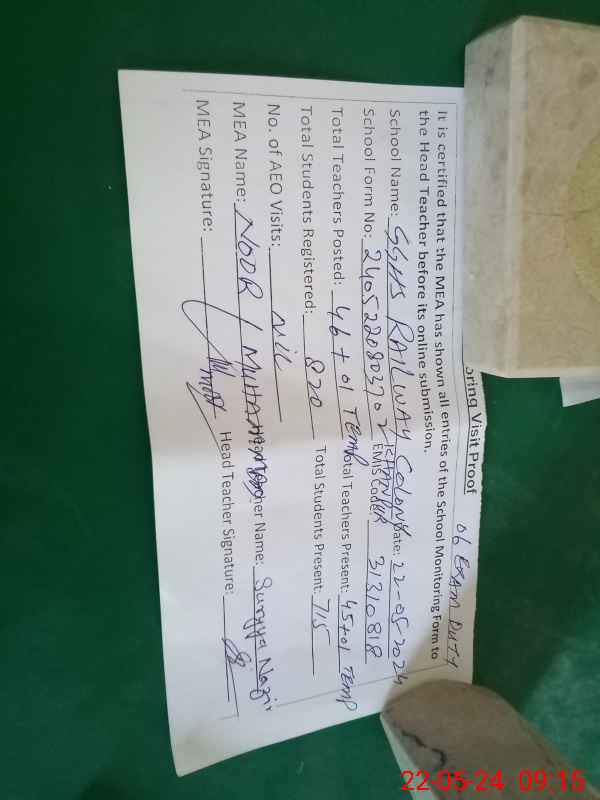 oring Visit Proof
06 EXAM DUTY
It is certified that the MEA has shown all entries of the School Monitoring Form to
the Head Teacher before its online submission.
School Name: GGHS RAILWAY COLONY KHANPUR Date: 22-05-2024
School Form No: 2405220803702 EMIS Code: 31310818
Total Teachers Posted: 46+01 TEMP Total Teachers Present: 45+01 TEMP
Total Students Registered: 820 Total Students Present: 715
No. of AEO Visits: NIL
MEA Name: NOOR MUHAMMAD Head Teacher Name: Surayya Nazir
MEA Signature: Head Teacher Signature:
22-05-24 09:15